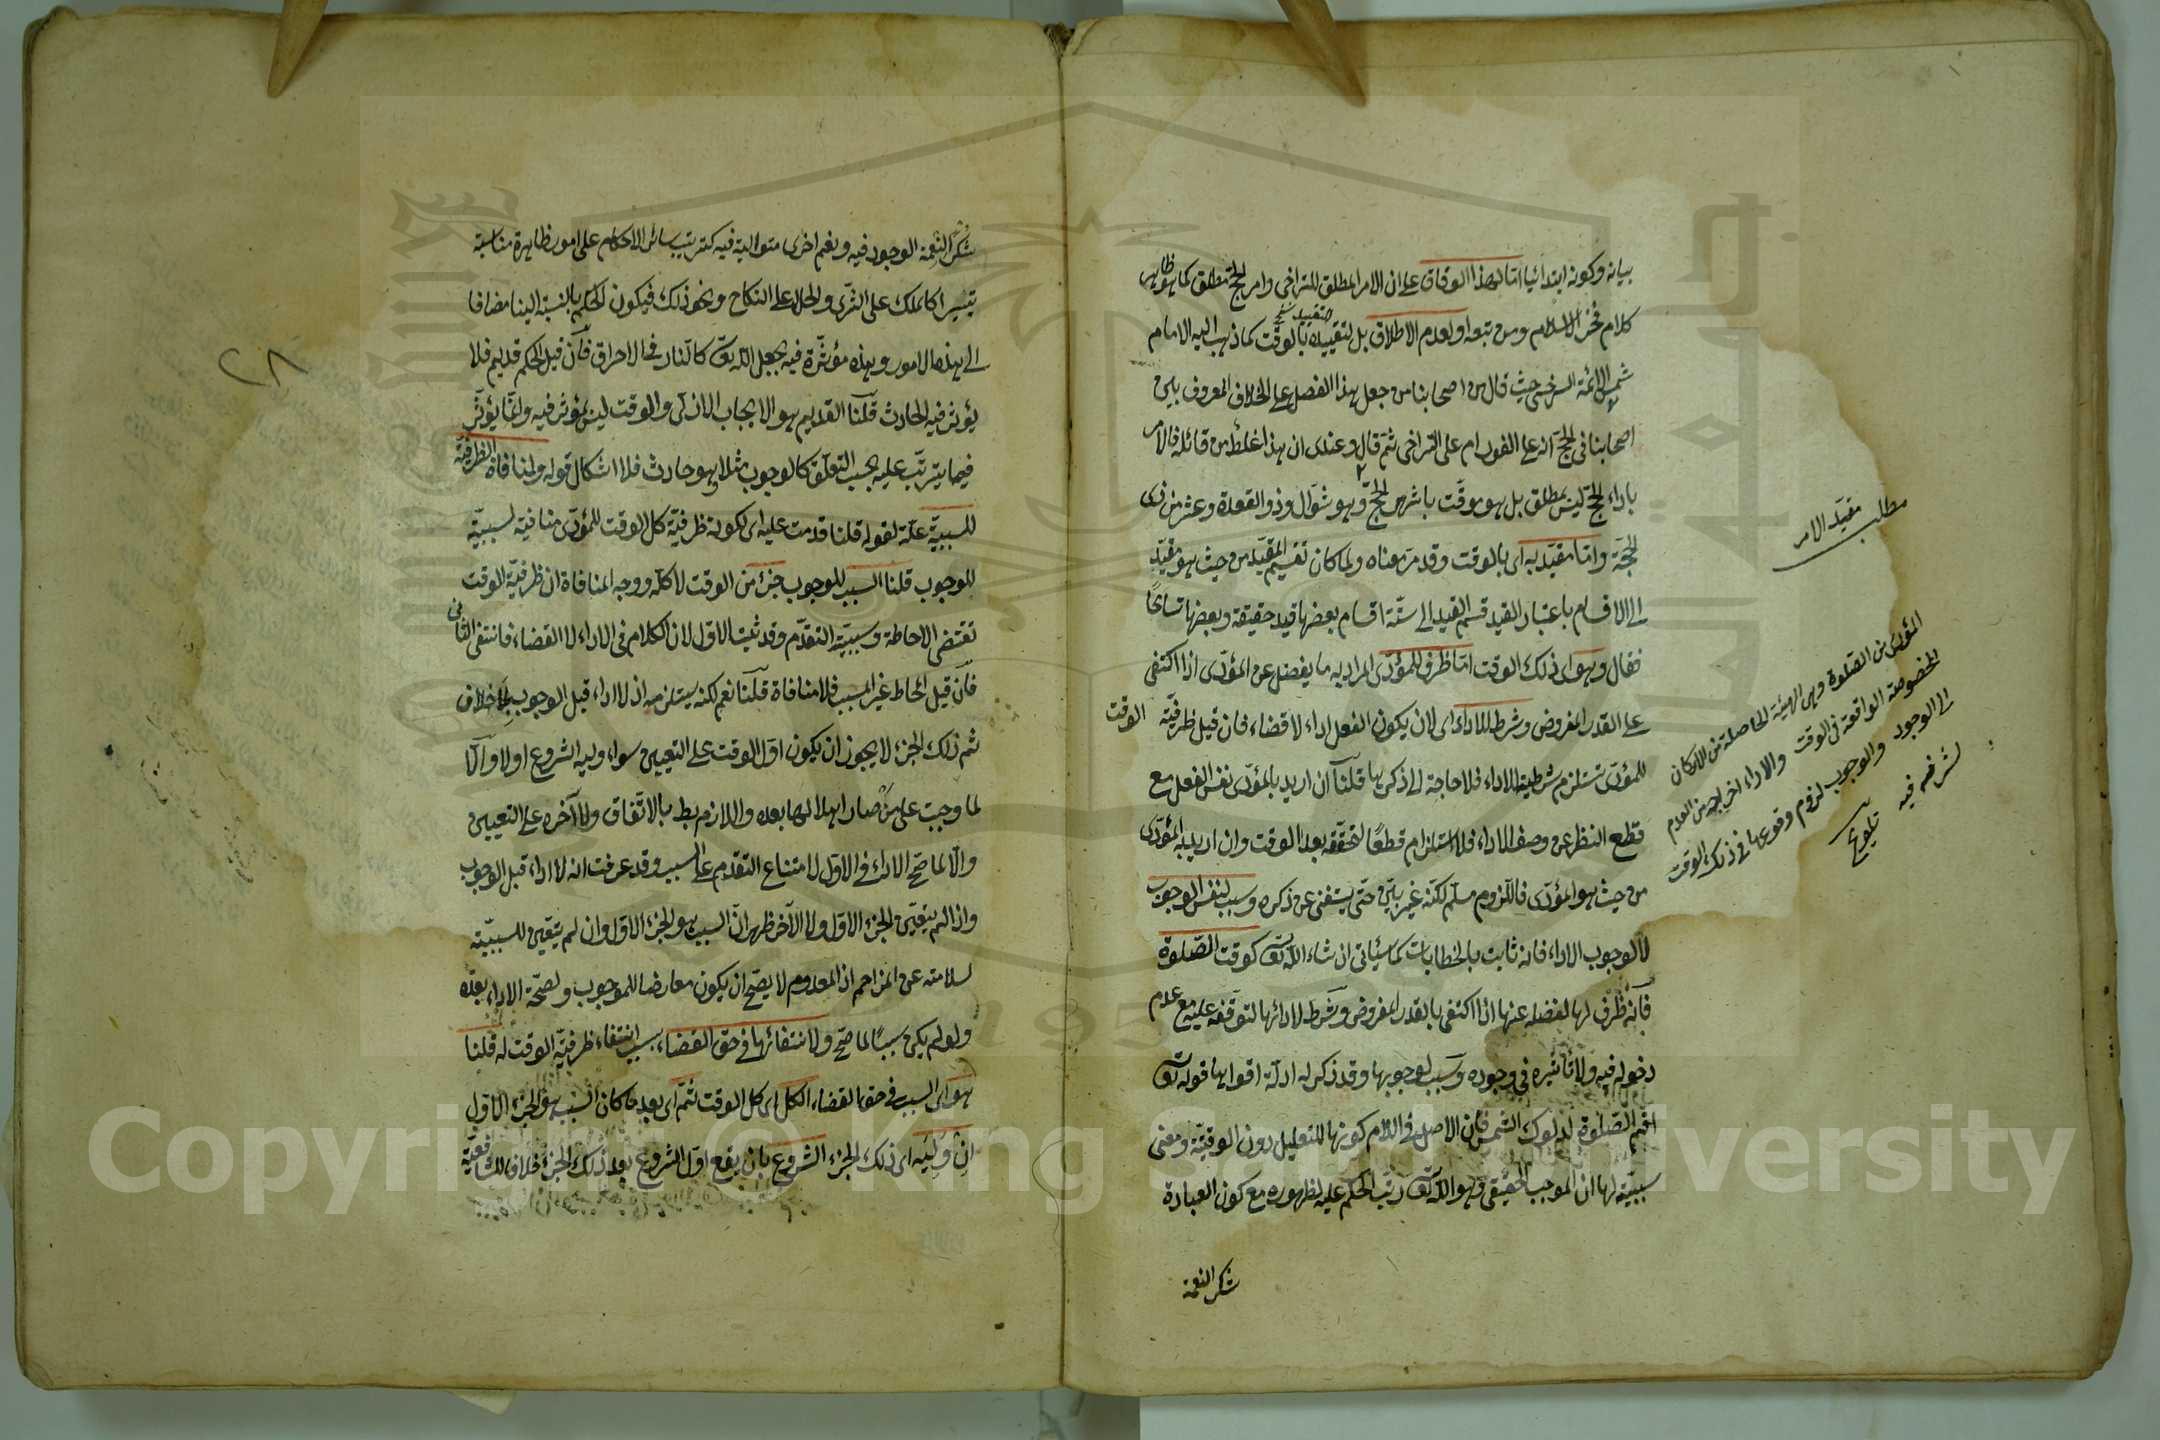 بيانه وكونه ابتدائيا اما لهذا الوفاق على ان الامر المطلق للتراخى وامر الحج مطلق كما هو ظاهر
كلام فخر الاسلام ومن تبعه او لعدم الاطلاق بل لتقييده بالوقت كما ذهب اليه الامام
شمس الائمة السرخسى حيث قال من اصحابنا من جعل هذا الفصل على الخلاف المعروف بين
اصحابنا فى الحج انه على الفور ام على التراخى ثم قال وعندى ان هذا غلط من قائله فالامر
باداء الحج ليس بمطلق بل هو موقت باشهر الحج وهو شوال وذو القعدة وعشر من ذى
الحجة واما مقيد به اى بالوقت وقد مر معناه ولما كان تقسيم المقيد من حيث هو مقيد
الى الاقسام باعتبار القيد قسم القيد الى ستة اقسام بعضها قيد حقيقة وبعضها تسامحا
فقال وهو اى ذلك الوقت اما ظرف للمؤدى المراد به ما يفضل عن المؤدى اذا اكتفى
على القدر المفروض وشرط للاداء اى لان يكون الفعل اداء لا قضاء فان قيل ظرفية الوقت
للمؤدى تستلزم شرطيته للاداء فلا حاجة الى ذكرها قلنا ان اريد بالمؤدى نفس الفعل مع
قطع النظر عن وصف الاداء فلا استلزام قطعا لتحققه بعد الوقت وان اريد به المؤدى
من حيث هو المؤدى فاللزوم مسلم لكنه غير بين حتى يستغنى عن ذكره وسبب لنفس الوجوب
لا لوجوب الاداء فانه ثابت بالخطابات كما سيأتى ان شاء الله تعالى كوقت الصلوة
فانه ظرف لها لفضله عنها اذا اكتفى بالقدر المفروض وشرط لادائها لتوقفه عليه مع عدم
دخوله فيه ولا تأثيره فى وجوده وسبب لوجوبها وقد ذكر له ادلة اقواها قوله تعالى
اقم الصلوة لدلوك الشمس فان الاصل فى اللام كونها للتعليل دون الوقتية ومعنى
سببيته لها ان الموجب الحقيقى وهو الله تعالى رتب الحكم عليه لظهوره مع كون العبادة
شكر النعمة
مطلب مقيد الامر
المؤدى من الصلوة وهى الهيئة الحاصلة من الاركان
المخصوصة الواقعة فى الوقت والاداء اخراجه من العدم
الى الوجود والوجوب لزوم وقوعها فى ذلك الوقت
لشرفه فيه تلويح
٢٨
شكر النعمة الوجود فيه ونعم اخرى متوالية فيه كترتيب سائر الاحكام على امور ظاهرة مناسبة
تيسيرا كالملك على الشرى والحل على النكاح ونحو ذلك فيكون الحكم بالنسبة الينا مضافا
الى هذه الامور وهذه مؤثرة فيه بجعل الله تعالى كالنار فى الاحراق فان قيل الحكم قديم فلا
يؤثر فيه الحادث قلنا القديم هو الايجاب الازلى والوقت ليس بمؤثر فيه وانما يؤثر
فيما يترتب عليه بحسب التعلق كالوجوب مثلا وهو حادث فلا اشكال قوله ولمنافاة الظرفية
للسببية علة لقوله قلنا قدمت عليه اى لكونه ظرفية كل الوقت للمؤدى منافية لسببية
للوجوب قلنا السبب للوجوب جزء من الوقت لا كله ووجه المنافاة ان ظرفية الوقت
تقتضى الاحاطة وسببيته التقدم وقد ثبت الاول لان الكلام فى الاداء لا القضاء فانتفى الثانى
فان قيل المحاط غير المسبب فلا منافاة قلنا نعم لكنه يستلزمه اذ لا اداء قبل الوجوب بلا خلاف
ثم ذلك الجزء لا يجوز ان يكون اول الوقت على التعيين سواء وليه الشروع اولا والا
لما وجبت على من صار اهلا لها بعده واللازم بط بالاتفاق ولا آخره على التعيين
والا لما صح الاداء فى الاول لامتناع التقدم على السبب وقد عرفت انه لا اداء قبل الوجوب
واذا لم يتعين الجزء الاول ولا الآخر ظهر ان السبب هو الجزء الاول وان لم يتعين للسببية
لسلامته عن المزاحم اذ المعدوم لا يصح ان يكون معارضا للموجوب ولصحة الاداء بعده
ولو لم يكن سببا لما صح ولانتفائها فى حق القضاء بسبب انتفاء ظرفية الوقت له قلنا
هو اى السبب فى حق القضاء الكل اى كل الوقت ثم اى بعد ما كان السبب هو الجزء الاول
ان وليه اى ذلك الجزء الشروع بان يقع اول الشروع بعد ذلك الجزء خلافا للشافعية
Copyright © King Saud University
1957